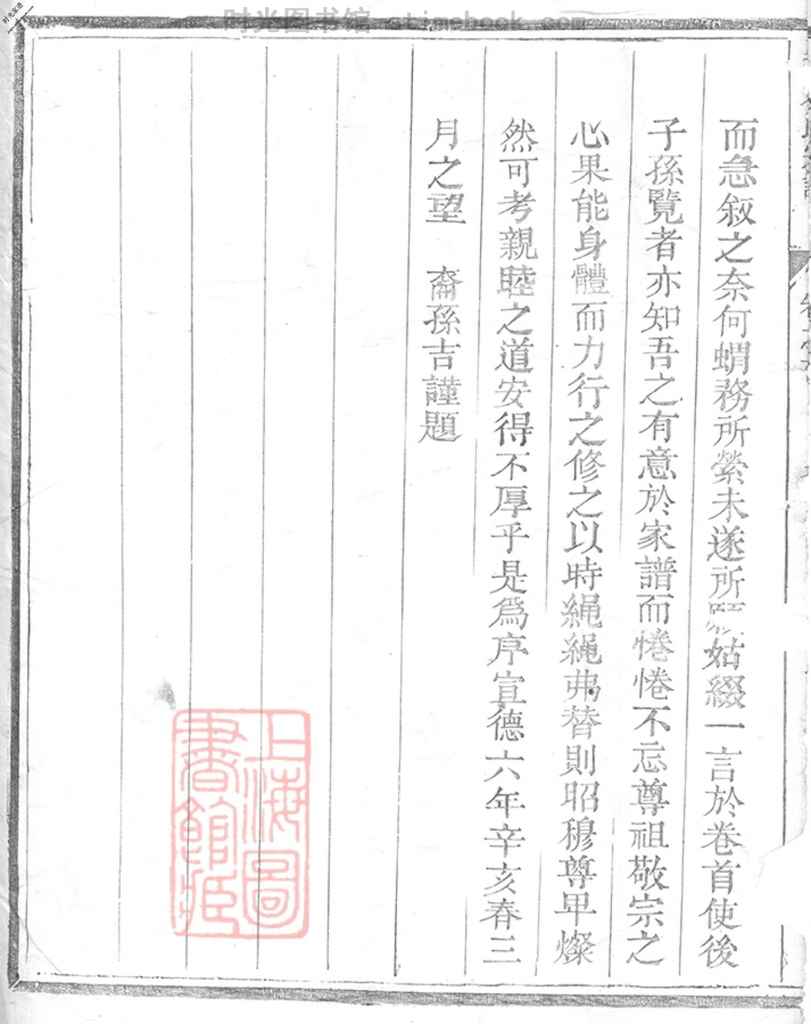 时光图书馆 stimebook.com
而急敘之奈何蝟務所縈未遂所願姑綴一言於卷首使後
子孫覽者亦知吾之有意於家譜而惓惓不忘尊祖敬宗之
心果能身體而力行之修之以時繩繩弗替則昭穆尊卑燦
然可考親睦之道安得不厚乎是爲序宣德六年辛亥春三
月之望 裔孫吉謹題
上海圖書館藏